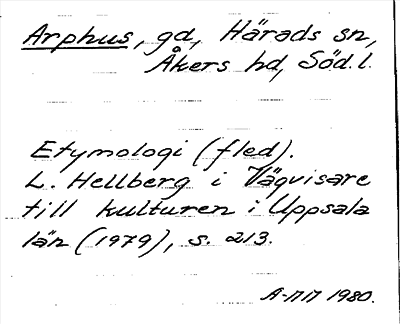 Arphus, gd, Härads sn,
Åkers hd, Söd. l.
Etymologi (fled).
L. Hellberg i Vägvisare
till kulturen i Uppsala
län (1979), s. 213.
A-MM 1980.